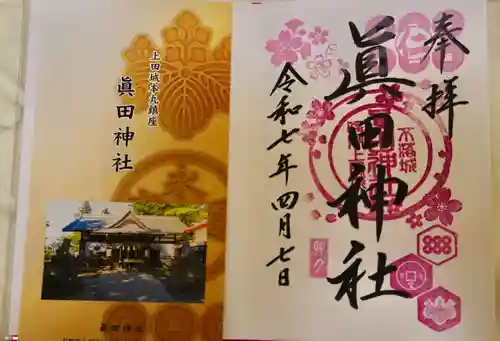 奉拝
眞田神社
令和七年四月七日
不落城
上田城本丸鎮座
眞田神社
眞田神社